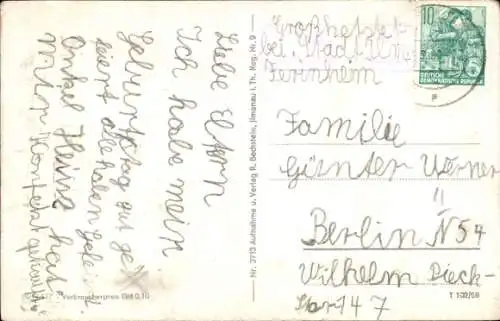 Liebe Eltern
Ich habe mein
Geburtstag gut ge-
feiert alle haben
Onkel Heins hat
mir Konfekt
Verbraucherpreis DM 0,10
Nr. 3713 Aufnahme u. Verlag R. Bechstein, Ilmenau i. Th. Reg. Nr. 9
Großhetstet
bei Stadt Ilm
Ferinheim
10
DEUTSCHE
DEMOKRATISCHE REPUBLIK
Familie
Günter Werner
Berlin N 54
Wilhelm Pieck-
Star 147
T 109/58